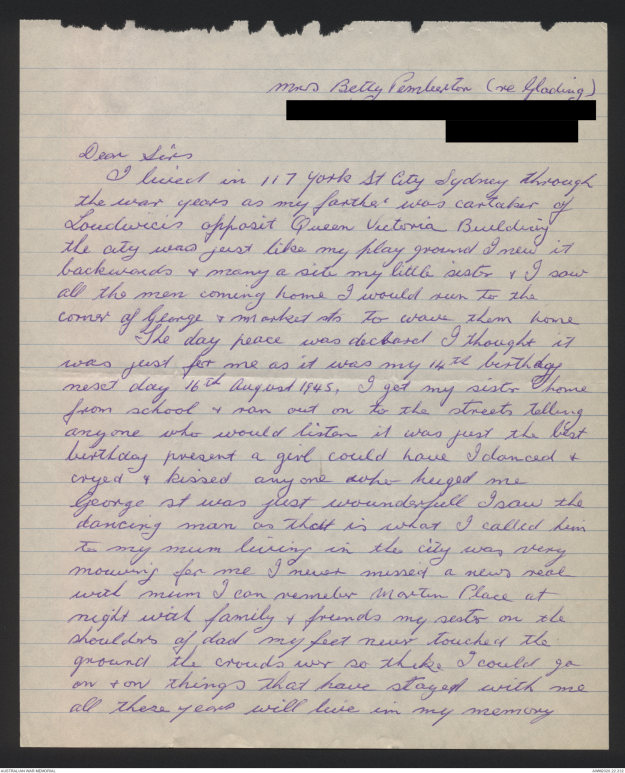 Mrs Betty Pemberton (ne Glading)
Dear Sirs
I lived in 117 York St City Sydney through
the war years as my farther was cartaker of
Loudwicis opposit Queen Victoria Building
the city was just like my play ground I new it
backwards & many a site my little sister & I saw
all the men coming home I would run to the
corner of George & market sts to wave them home
The day peace was declard I thought it
was just for me as it was my 14th birthday
next day 16th August 1945, I get my sister home
from school & ran out on to the streets telling
anyone who would listen it was just the best
birthday present a girl could have I danced &
cryed & kissed anyone who huged me
George st was just wounderfull I saw the
dancing man as that is what I called him
to my mum living in the city was very
mouving for me I never missed a news reel
with mum I can remeber Martin Place at
night with family & friends my sester on the
shoulders of dad my feet never touched the
ground the crouds wer so thike I could go
on & on things that have stayed with me
all these years will live in my memory
AUSTRALIAN WAR MEMORIAL